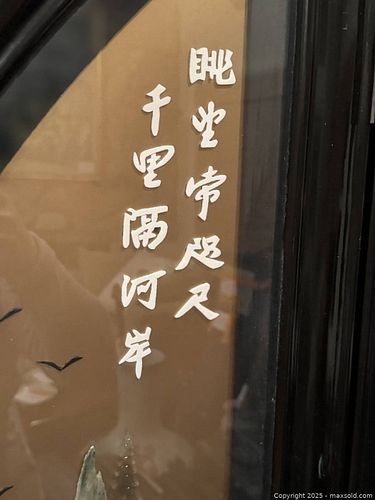 眺望常咫尺
千里隔河岸
Copyright 2025 - maxsold.com